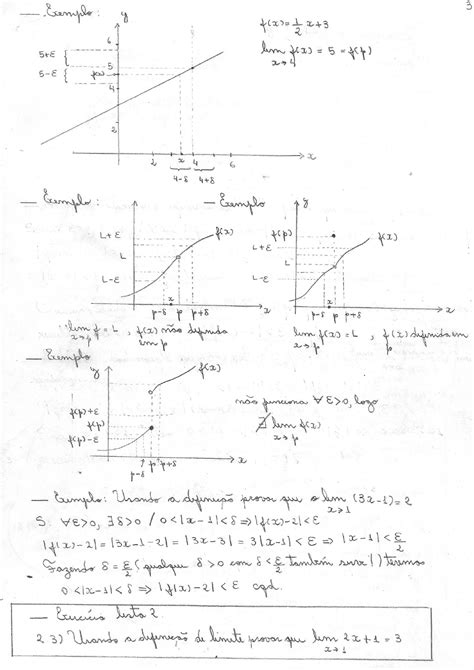 3
— Exemplo:
y
6
5+ε
5
5-ε
f(x)
4
2
2
x
4
6
x
4-δ
4+δ
f(x) = 1/2 x+3
lim f(x) = 5 = f(p)
x→4
— Exemplo
L+ε
L
L-ε
f(x)
x
p-δ p p+δ
x
lim f = L , f(x) não definida
x→p
em p
— Exemplo
y
f(p)
L+ε
L
L-ε
f(x)
x
p-δ p p+δ
x
lim f(x) = L , f(x) definida em
x→p
p
— Exemplo
y
f(x)
f(p)+ε
f(p)
f(p)-ε
p p+δ
p-δ
x
não funciona ∀ε>0, logo
∄ lim f(x)
x→p
— Exemplo: Usando a definição provar que o lim (3x-1)=2
x→1
S: ∀ε>0, ∃δ>0 / 0<|x-1|<δ ⇒ |f(x)-2|<ε
|f(x)-2| = |3x-1-2| = |3x-3| = 3|x-1|<ε ⇒ |x-1|<ε/2
Fazendo δ = ε/2 (qualquer δ>0 com δ<ε/2 também serve!) teremos
0<|x-1|<δ ⇒ |f(x)-2|<ε cqd.
— Exercício lista 2.
2.3) Usando a definição de limite provar que lim 2x+1=3
x→1